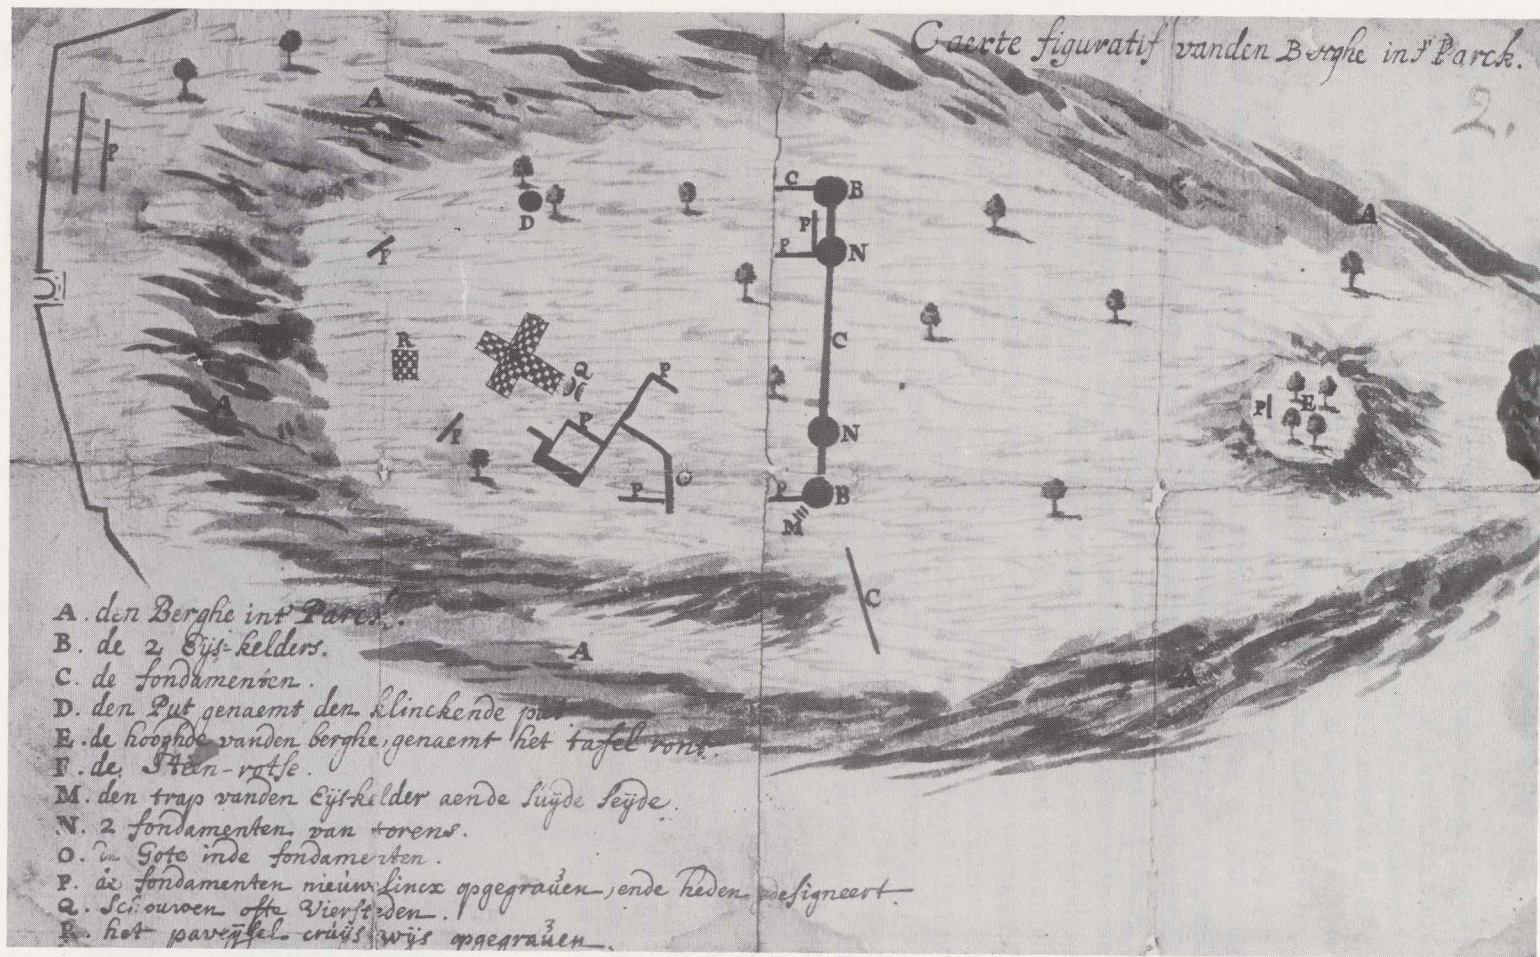 Caerte figuratif vanden Berghe int' Parck.
2.
A
A
A
P
C
B
P
P
N
D
F
R
C
Q
P
P
F
P
E
A
N
P
P
B
M
C
A
A
A. den Berghe int' Parck.
B. de 2 Eijs-kelders.
C. de fondamenten.
D. den Put genaemt den klinckende put
E. de hooghde vanden berghe, genaemt het tafel ront.
F. de Steen-rotse.
M. den trap vanden Eijs-kelder aende suijde seijde.
N. 2 fondamenten van torens.
O. Gote inde fondamenten.
P. de fondamenten nieuwelincx opgegraven, ende heden gedesigneert.
Q. Schouwen ofte Viersteden.
R. het paveijsel cruijs wijs opgegraven.